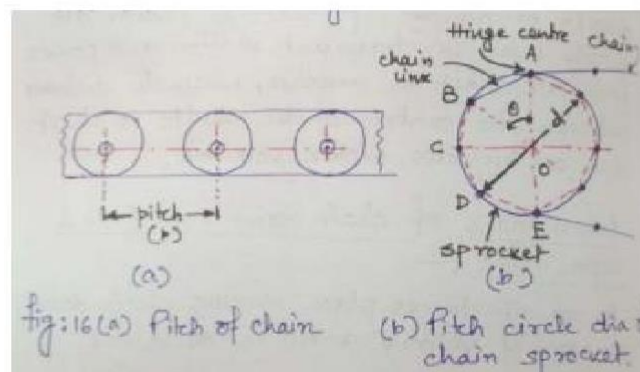 Hinge centre
chain
chain
link
A
B
θ
d
C
O
D
E
pitch
(p)
sprocket
(a)
(b)
fig:16(a) Pitch of chain
(b) Pitch circle dia
chain sprocket.